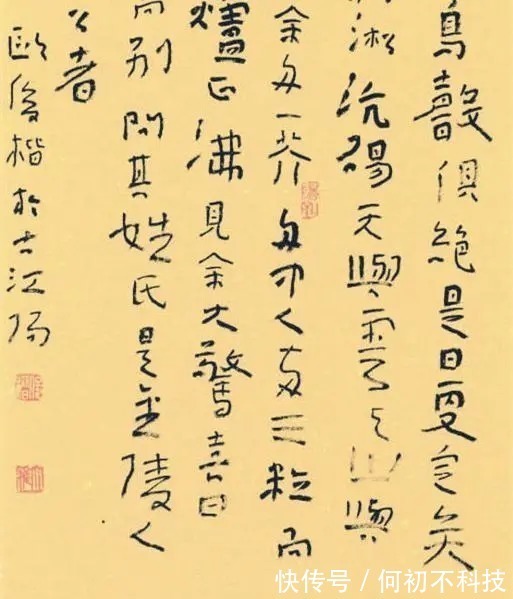 鳥聲俱絕是日更定矣
淞沆碭天與雲与山與
余舟一芥舟中人兩三粒而
爐正沸見余大驚喜曰
而別問其姓氏是金陵人
者
歐俊楷於古江陽
快传号 / 何初不科技